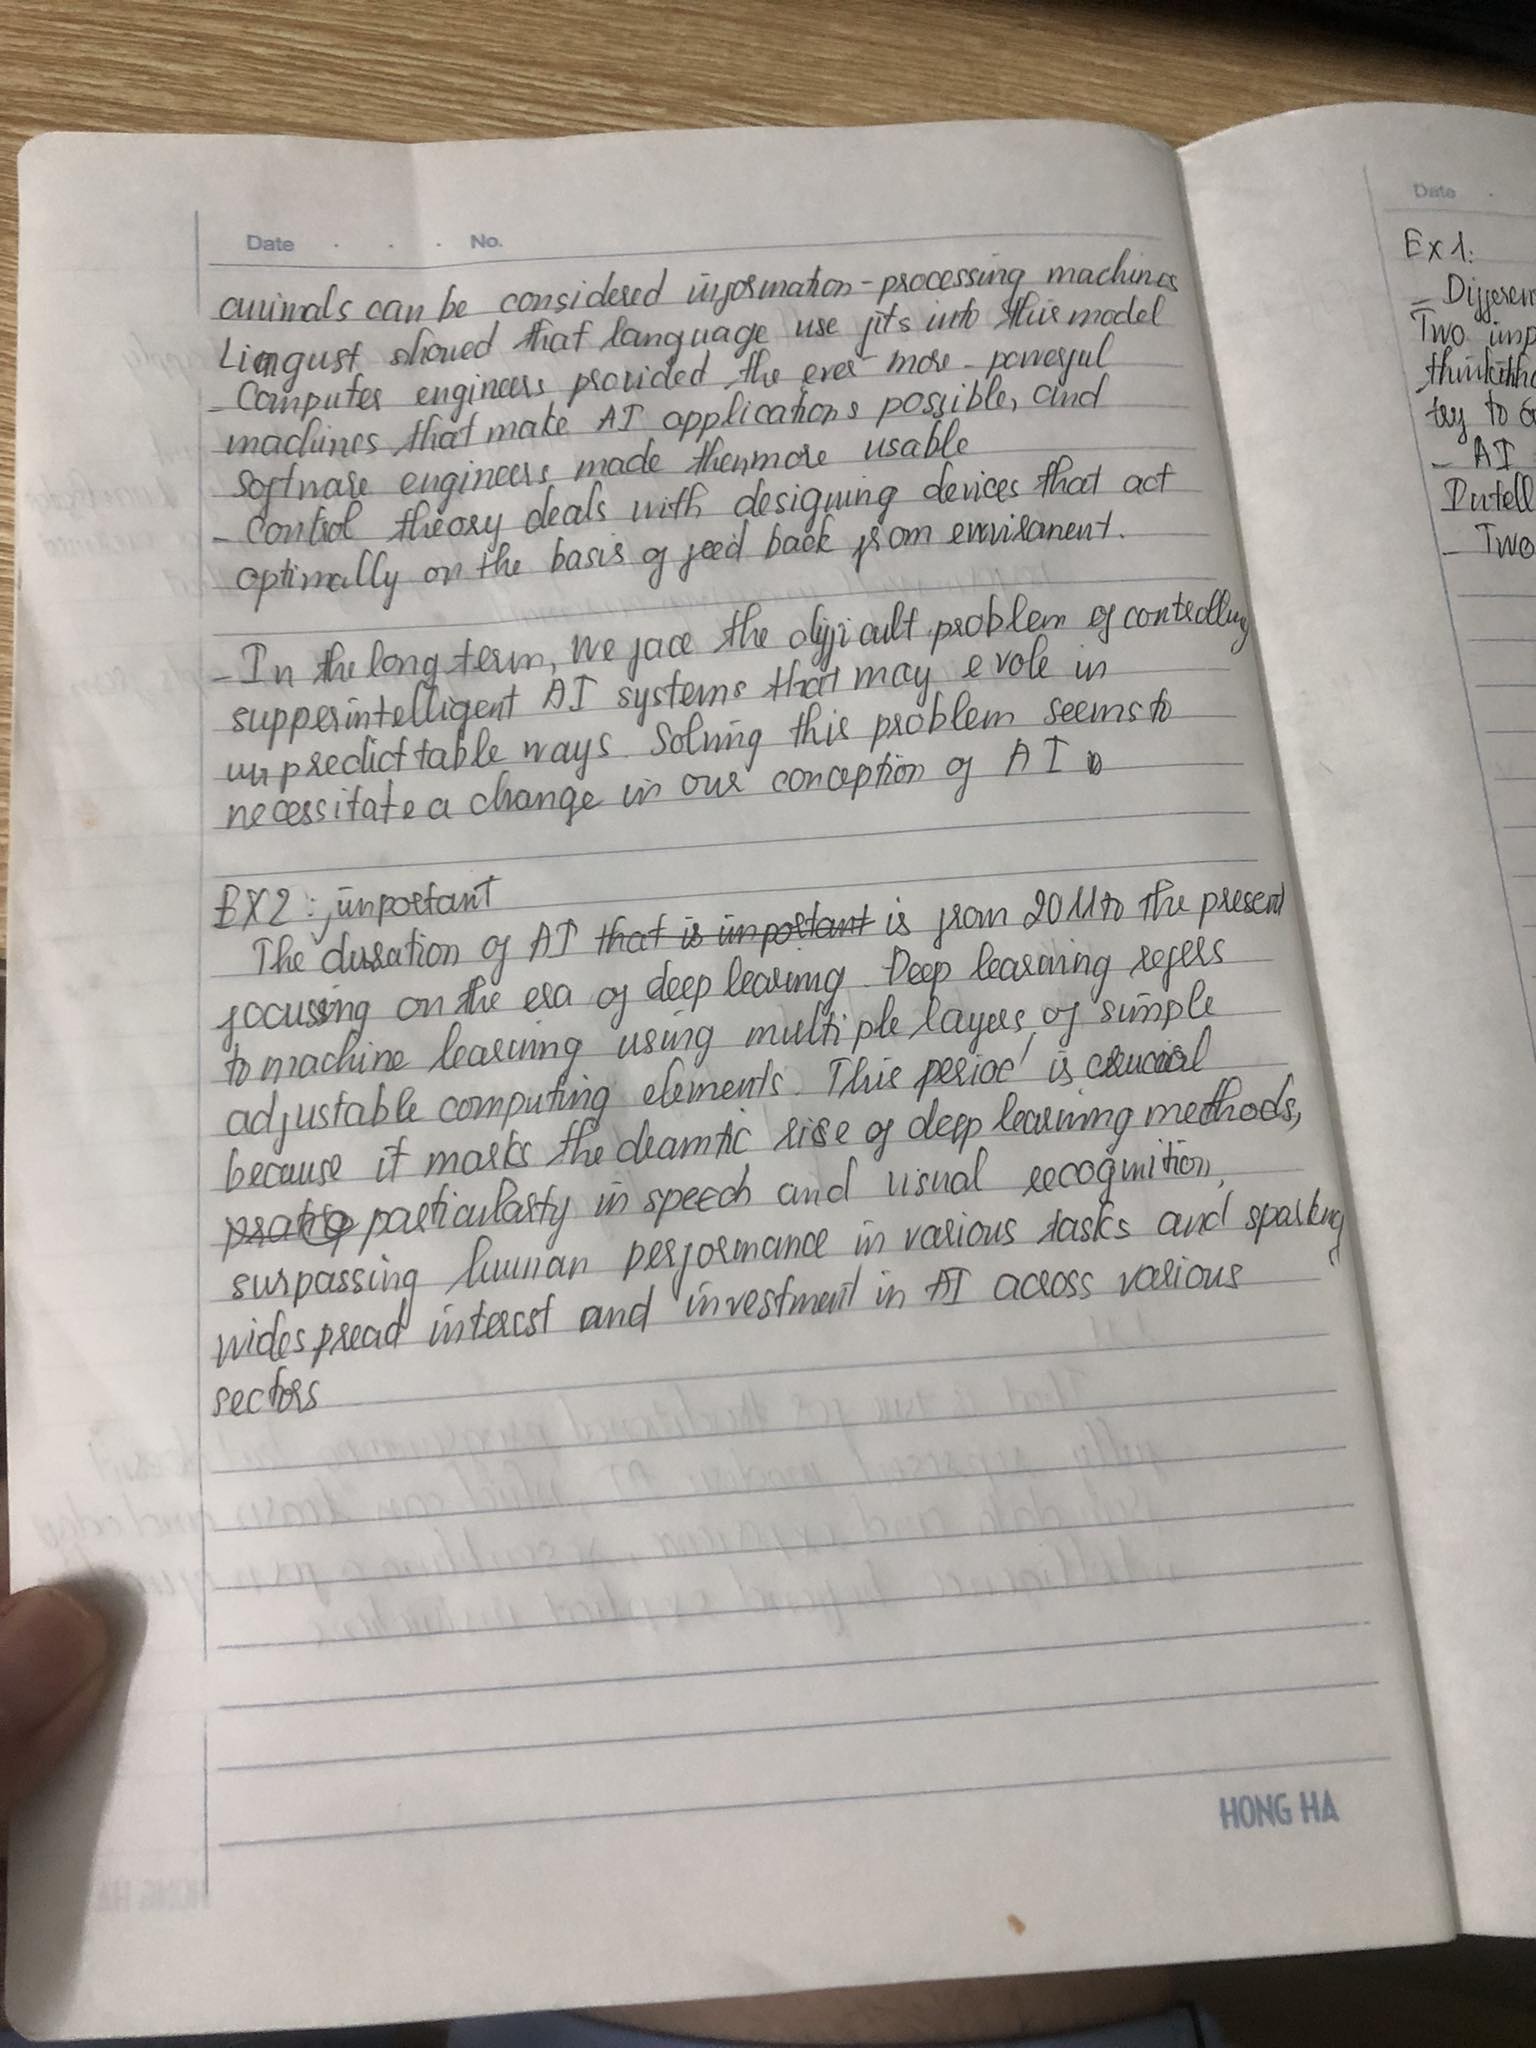 Date . . . No.
animals can be considered information-processing machines
Liengust showed that language use fits into this model
- Computer engineers provided the ever more-powerful
machines that make AI applications possible, and
software engineers made them more usable
- Control theory deals with designing devices that act
optimally on the basis of feed back from envirisanent.
- In the long term, We face the difficult problem of controlling
supperintelligent AI systems that may evole in
unpredicttable ways. Solving this problem seems to
necessitate a change in our conception of AI.
EX2: important
The duration of AI that is important is from 2011 to the present
focusing on the era of deep learning. Deep learning refers
to machine learning using multiple layers of simple
adjustable computing elements. This period is crucial
because it marks the dramtic rise of deep learning methods,
particularty in speech and visual recognition,
surpassing human performance in various tasks and sparking
widespread interest and investment in AI across various
sectors
HONG HA
Date .
Ex1:
- Differen
Two imp
try to
- AI
Intell
- Two